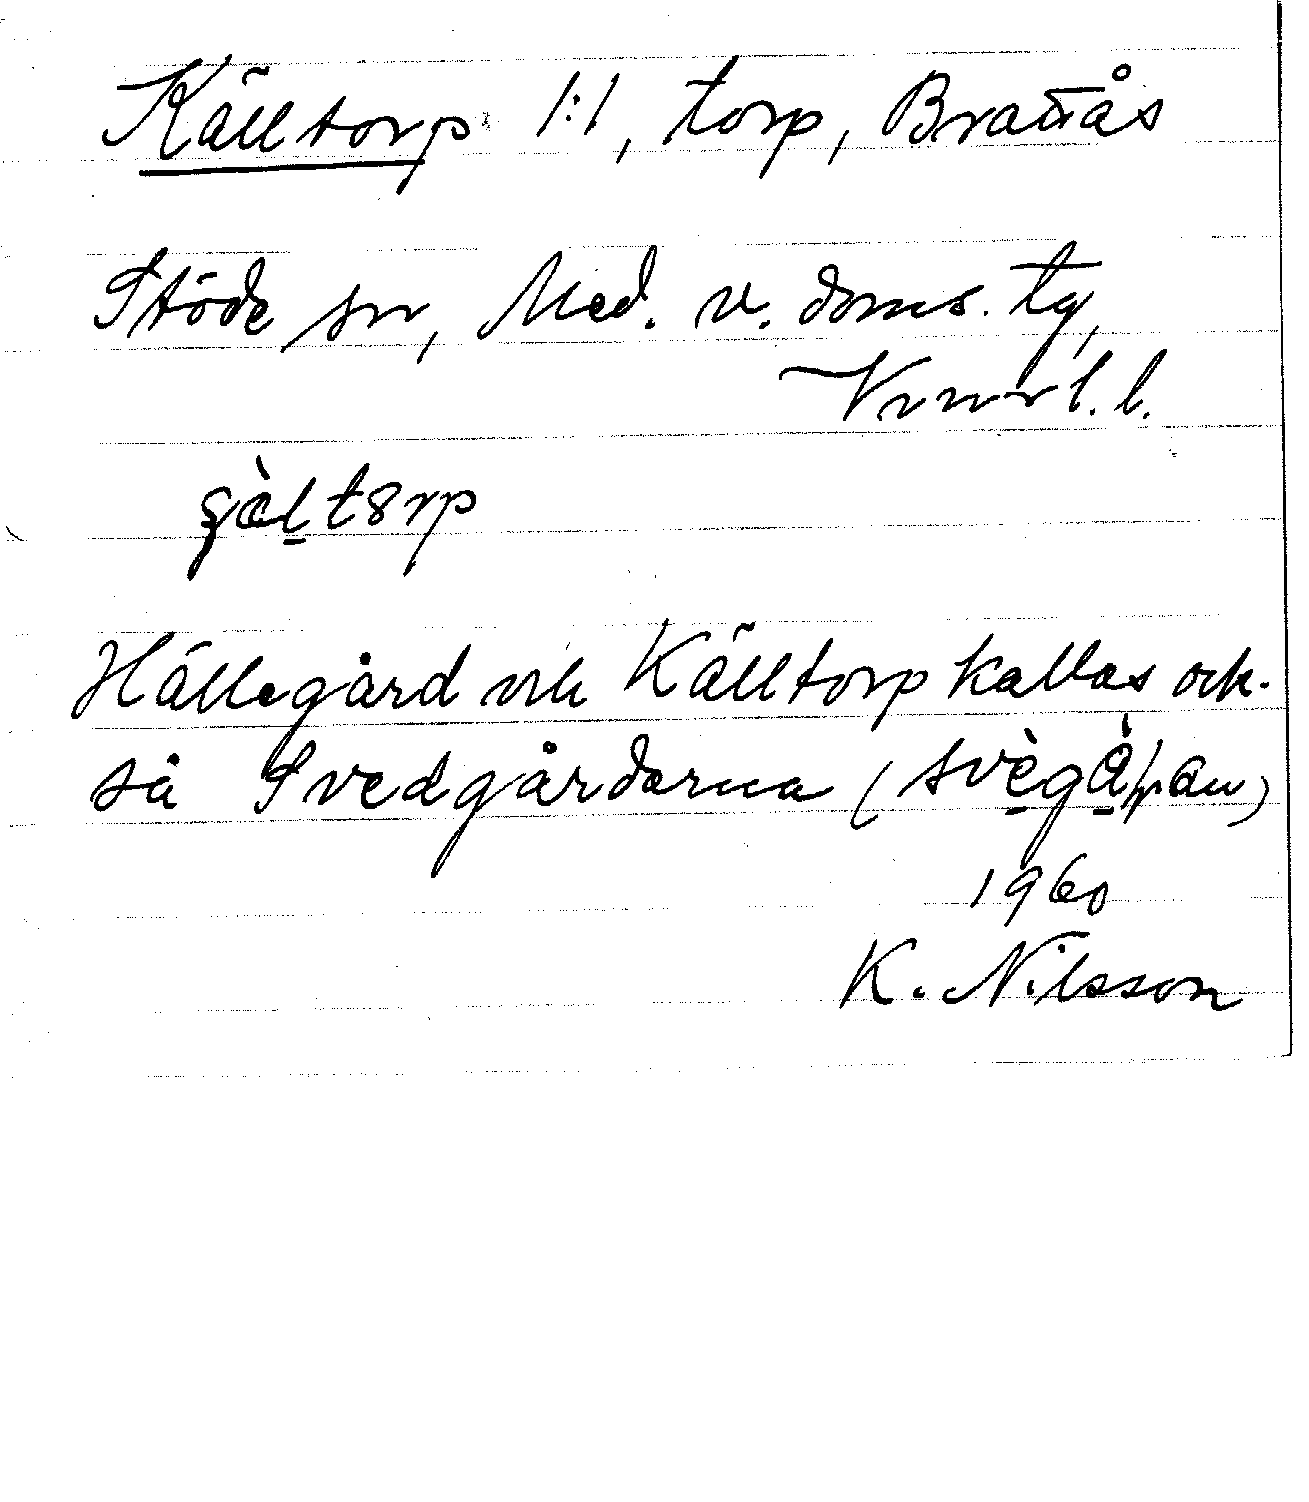 Källtorp 1:1, torp, Brattås
Stöde sn, Med. v. doms. tg,
Vrnrl. l.
Hällegård och Källtorp kallas ock-
så Svedgårdarna (
1960
K. Nilsson